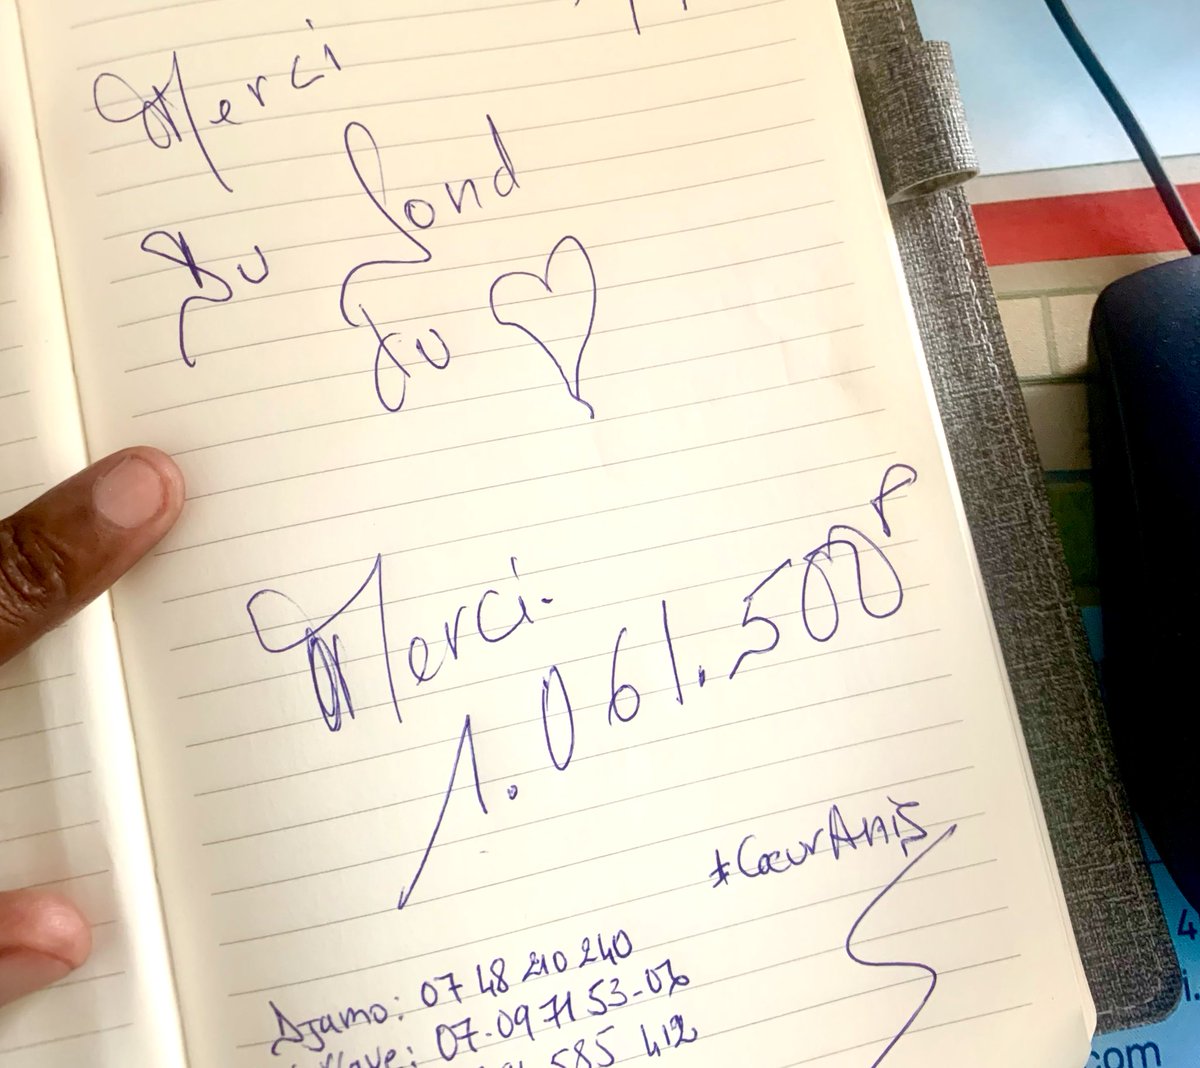 Merci
Du fond
du
Merci.
1.061.500F
#CœurAnis
Djamo: 07 48 210 240
07-09 71 53-06
585 412
4
i.
com